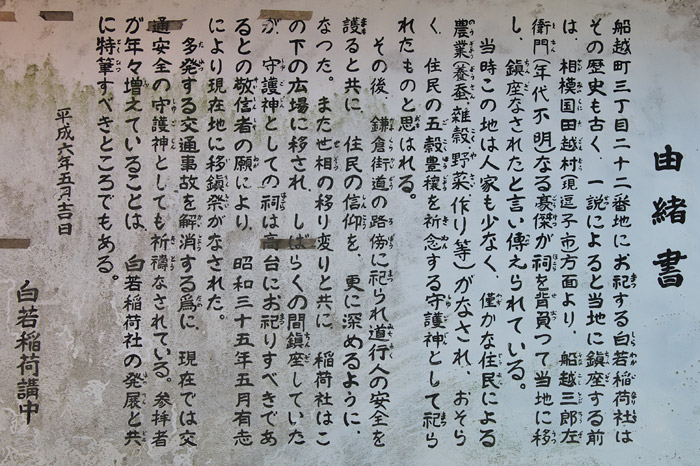 由緒書
船越町三丁目二十二番地にお祀する白若稲荷社は
その歴史も古く、一説によると当地に鎮座する前
は、相模国田越村(現逗子市)方面より、船越三郎左
衛門(年代不明)なる豪傑が祠を背負つて当地に移
し、鎮座なされたと言い傳えられている。
当時この地は人家も少なく、僅かな住民による
農業(養蚕、雑穀、野菜作り等)がなされ、おそら
く、住民の五穀豊穣を祈念する守護神として祀ら
れたものと思はれる。
その後、鎌倉街道の路傍に祀られ道行人の安全を
護ると共に、住民の信仰を、更に深めるように、
なつた。また世相の移り変りと共に、稲荷社はこ
の下の広場に移され、しばらくの間鎮座していた
が、守護神としての祠は高台にお祀りすべきであ
るとの敬信者の願により、昭和三十五年五月有志
により現在地に移鎮祭がなされた。
多発する交通事故を解消する為に、現在では交
通安全の守護神としても祈禱なされている。参拝者
が年々増えていることは、白若稲荷社の発展と共
に特筆すべきところでもある。
平成六年五月吉日
白若稲荷講中